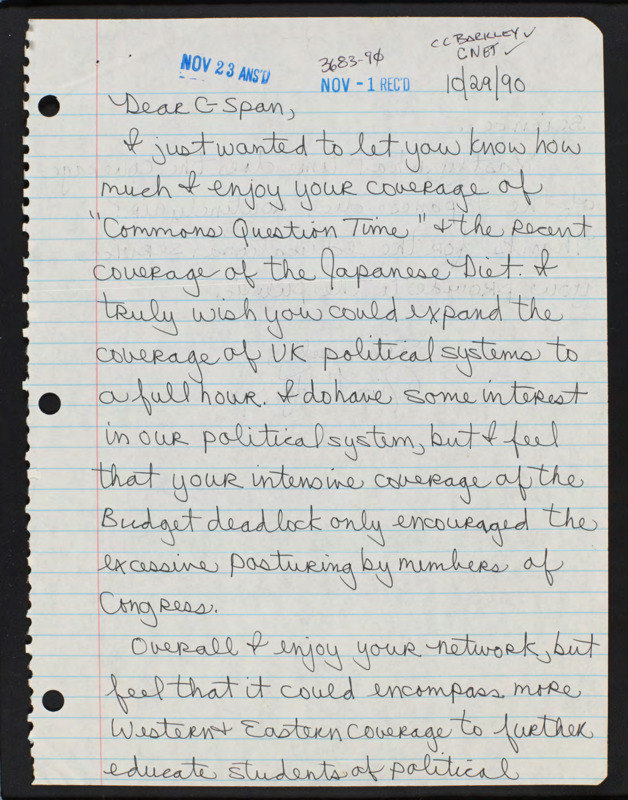 CC BARKLEY ✓
CNET ✓
NOV 23 ANS'D
3683-90
NOV - 1 REC'D
10/29/90
Dear C-Span,
I just wanted to let you know how
much I enjoy your coverage of
"Commons Question Time" & the recent
coverage of the Japanese Diet. I
truly wish you could expand the
coverage of UK political systems to
a full hour. I do have some interest
in our political system, but I feel
that your intensive coverage of the
Budget deadlock only encouraged the
excessive posturing by members of
Congress.
Overall I enjoy your network, but
feel that it could encompass more
Western & Eastern coverage to further
educate students of political